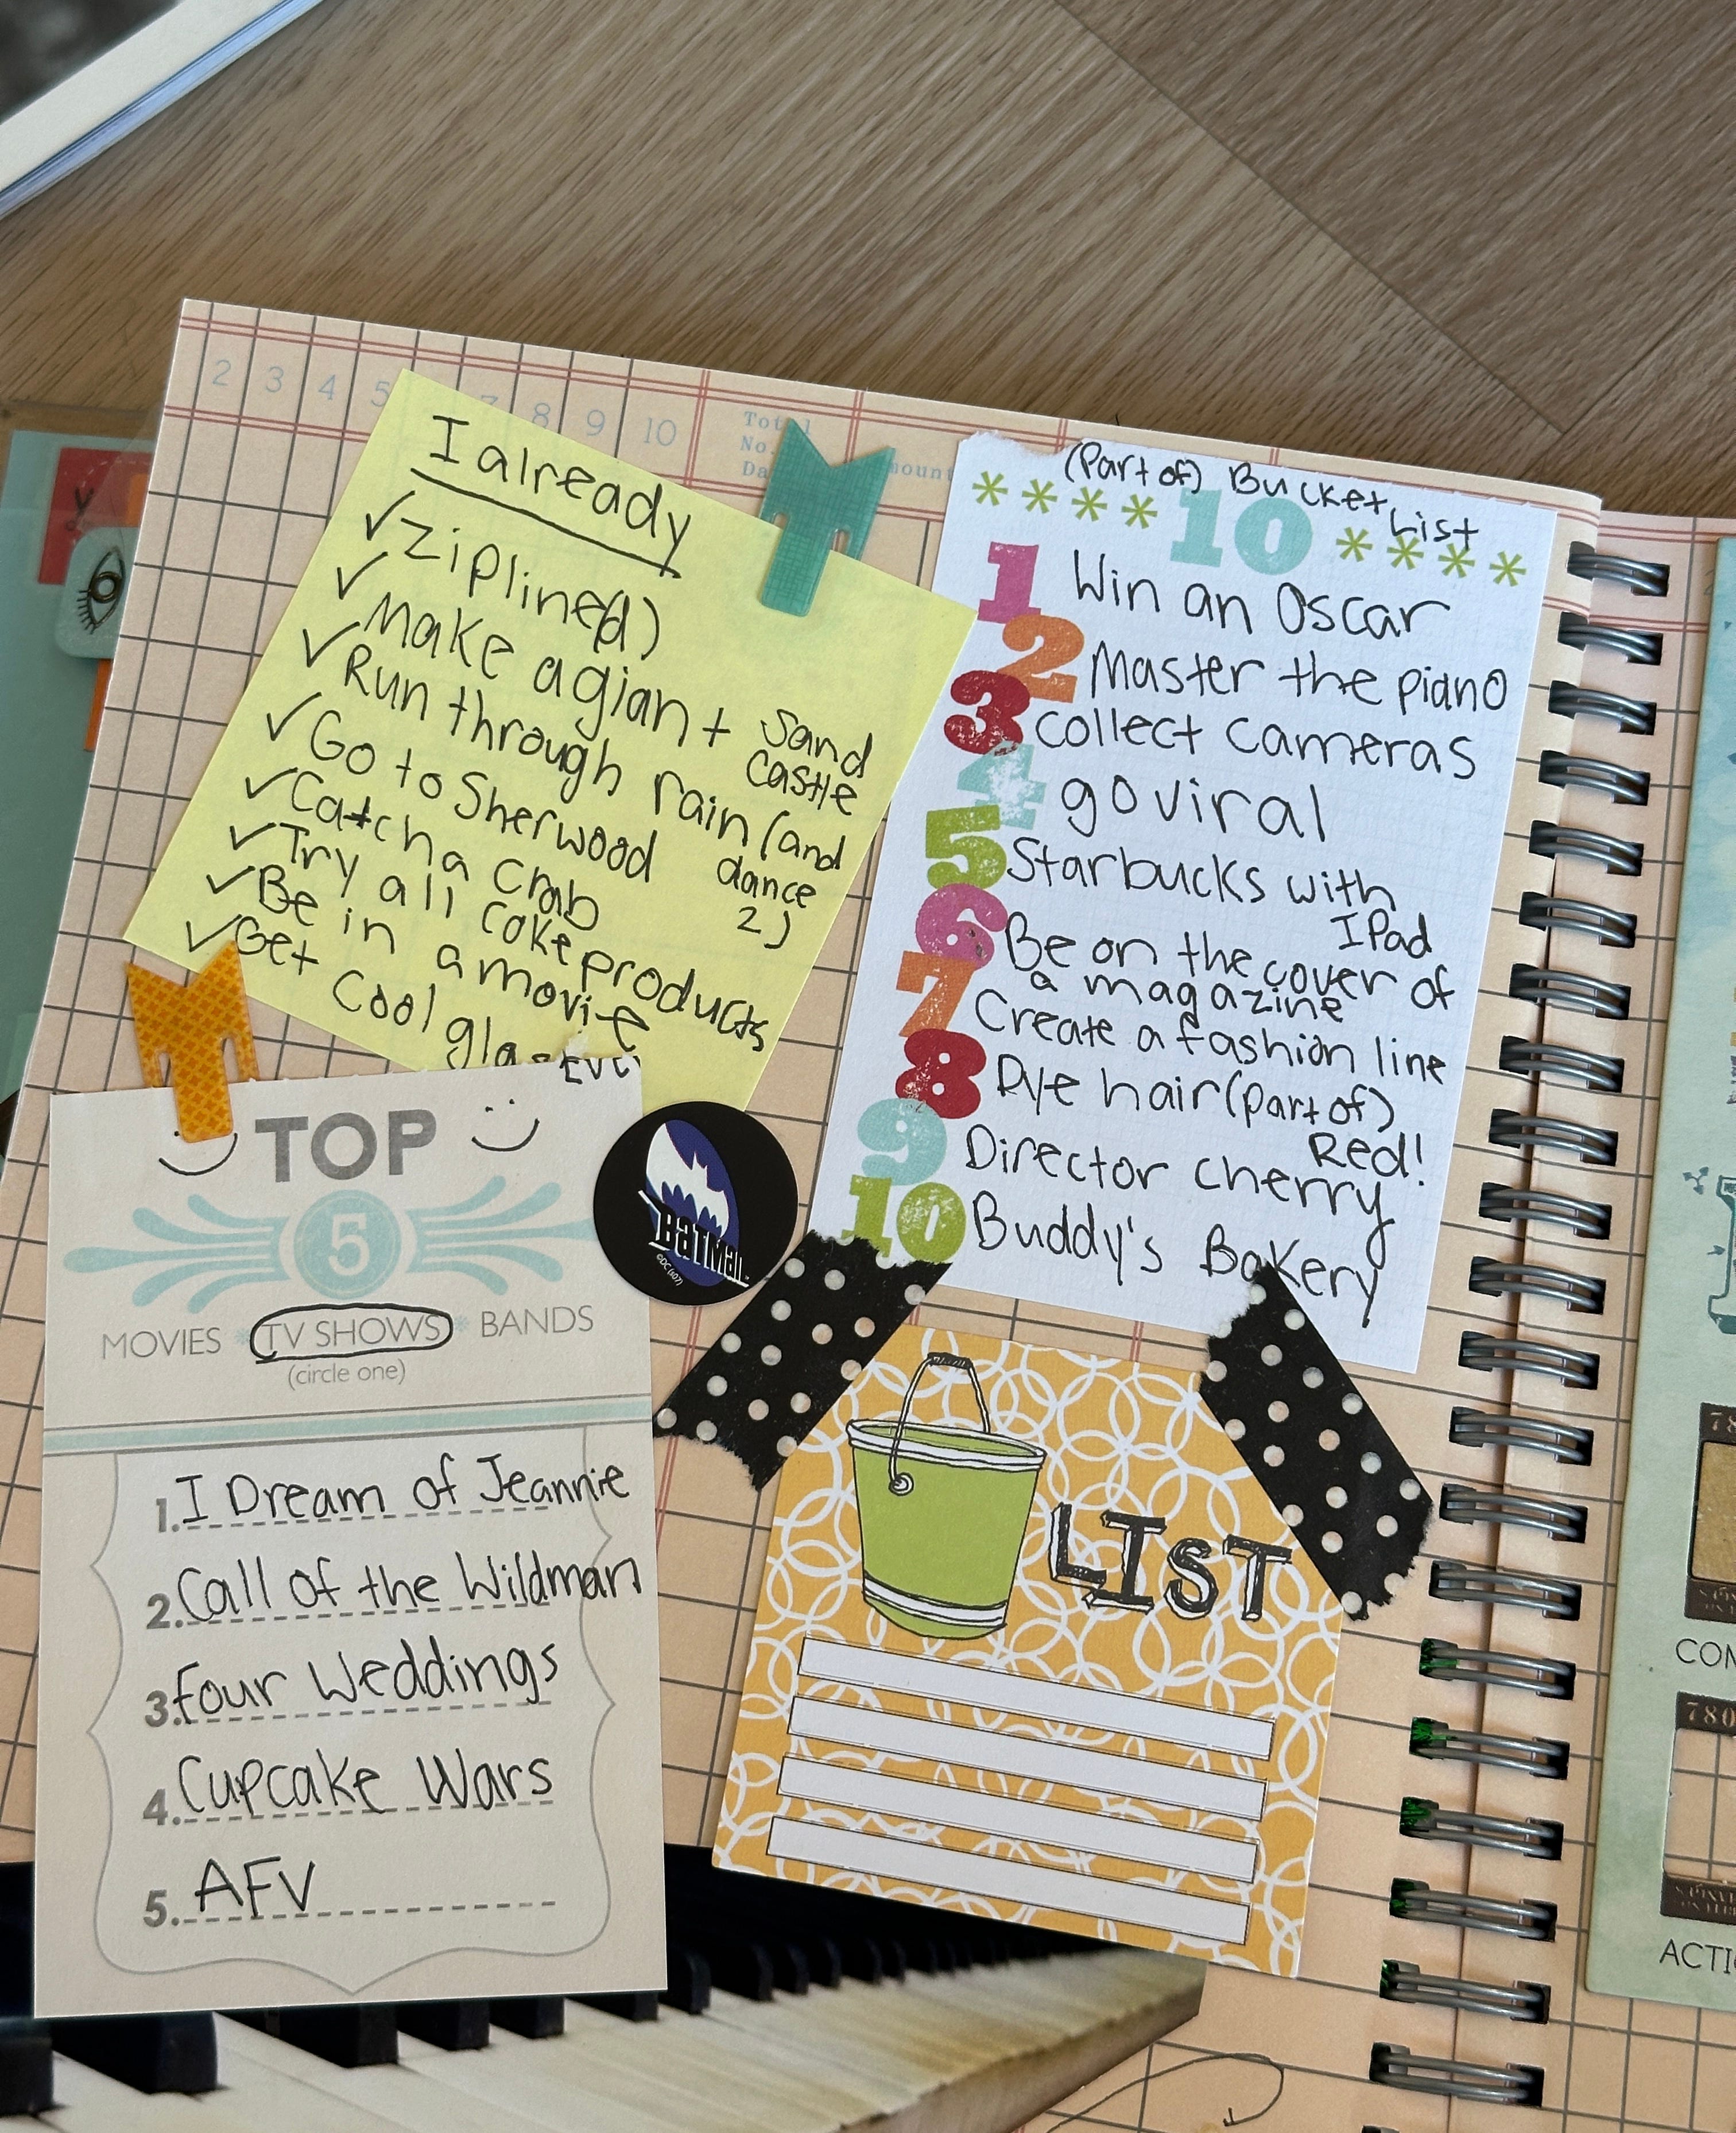 2 3 4 5 7 8 9 10
Total
No.
Da mount
I already
✓ zipline(d)
✓ Make a giant sand castle
✓ Run through rain (and dance 2)
✓ Go to Sherwood
✓ Catch a crab
✓ Try all coke products
✓ Be in a movie
✓ Get cool
(Part of) Bucket List
**** 10 ****
1 Win an Oscar
2 Master the piano
3 collect cameras
4 go viral
5 Starbucks with
IPad
6 Be on the cover of
a magazine
7 Create a fashion line
8 Dye hair (part of)
Red!
9 Director cherry
10 Buddy's Bakery
TOP
5
MOVIES * TV SHOWS * BANDS
(circle one)
1. I Dream of Jeannie
2. Call of the Wildman
3. four Weddings
4. Cupcake Wars
5. AFV
BATMAN
LIST
CON
780
ACTI